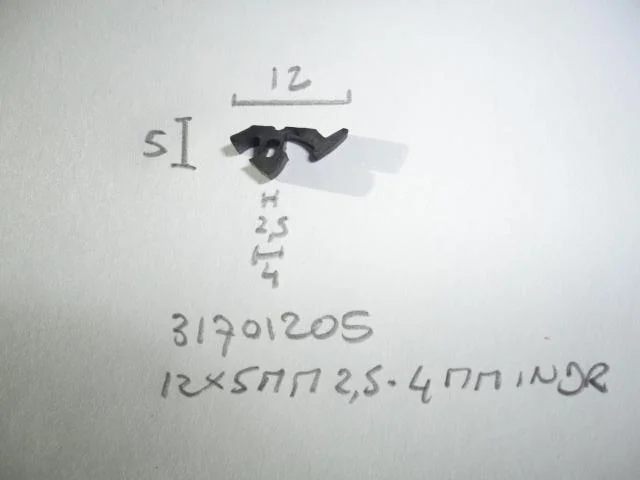 12
5
2,5
4
31701205
12x5MM 2,5-4MM INDR